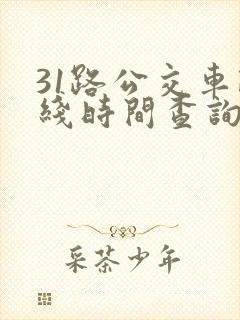 31路公交车
綫時間查詢
采茶少年